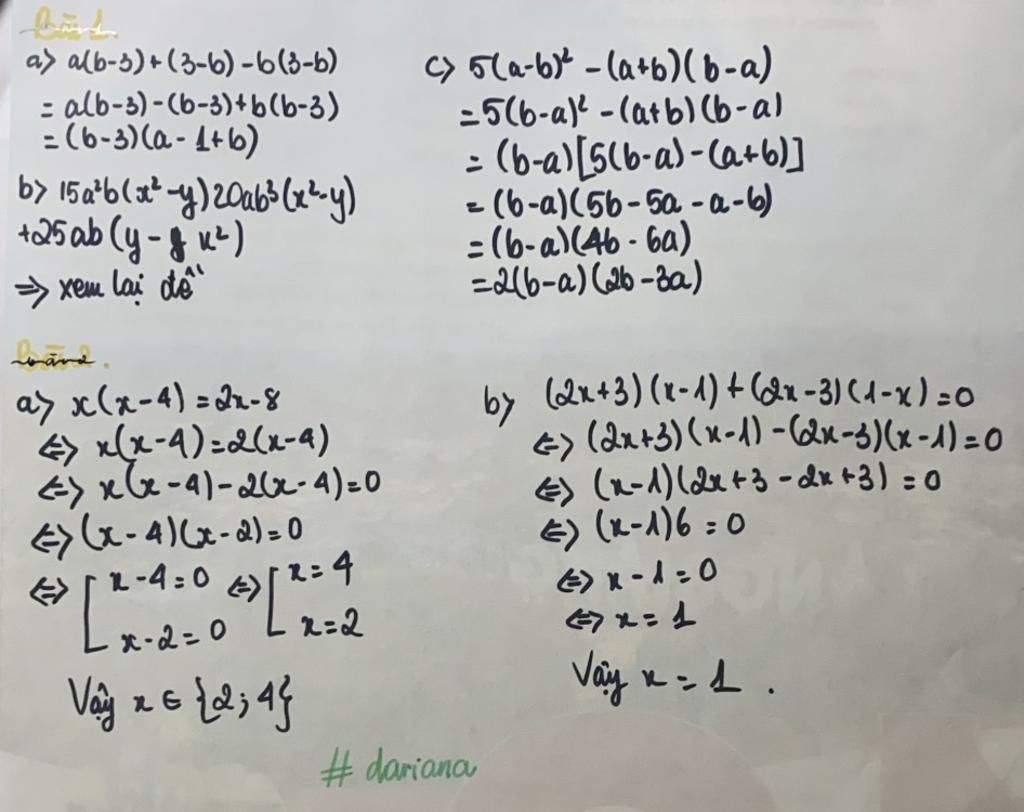 Bài 1.
a> a(b-3)+(3-b)-b(3-b)
= a(b-3)-(b-3)+b(b-3)
= (b-3)(a-1+b)
b> 15a²b(x²-y)20ab³(x²-y)
+25ab(y-x²)
=> xem lại đề
c> 5(a-b)² -(a+b)(b-a)
=5(b-a)² -(a+b)(b-a)
= (b-a)[5(b-a)-(a+b)]
= (b-a)(5b-5a-a-b)
=(b-a)(4b-6a)
=2(b-a)(2b-3a)
bài 2.
a> x(x-4)=2x-8
<=> x(x-4)=2(x-4)
<=> x(x-4)-2(x-4)=0
<=> (x-4)(x-2)=0
<=> [ x-4=0 <=> [ x=4
x-2=0 x=2
Vậy x ∈ {2;4}
b> (2x+3)(x-1)+(2x-3)(1-x)=0
<=> (2x+3)(x-1)-(2x-3)(x-1)=0
<=> (x-1)(2x+3-2x+3)=0
<=> (x-1)6=0
<=> x-1=0
<=> x=1
Vậy x=1.
# dariana